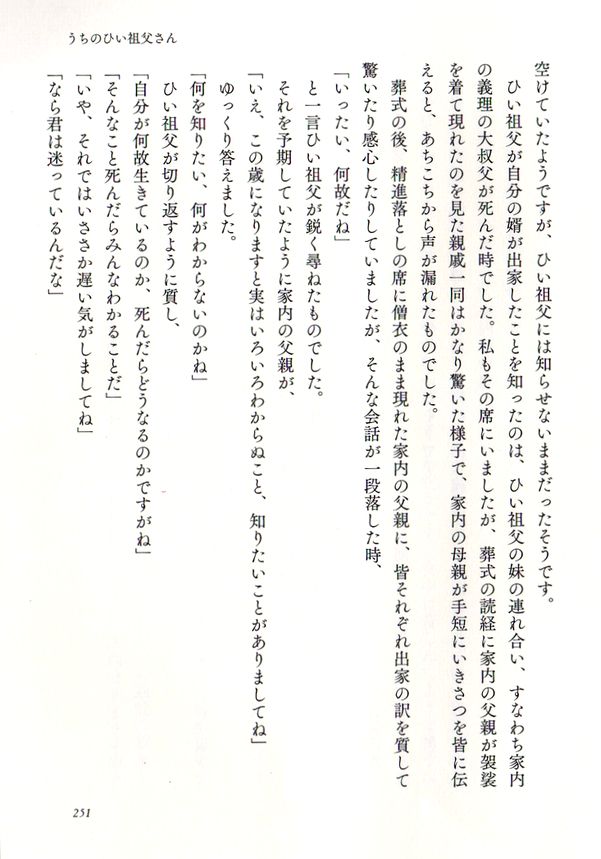 うちのひい祖父さん
空けていたようですが、ひい祖父には知らせないままだったそうです。
ひい祖父が自分の婿が出家したことを知ったのは、ひい祖父の妹の連れ合い、すなわち家内
の義理の大叔父が死んだ時でした。私もその席にいましたが、葬式の読経に家内の父親が袈裟
を着て現れたのを見た親戚一同はかなり驚いた様子で、家内の母親が手短にいきさつを皆に伝
えると、あちこちから声が漏れたものでした。
葬式の後、精進落としの席に僧衣のまま現れた家内の父親に、皆それぞれ出家の訳を質して
驚いたり感心したりしていましたが、そんな会話が一段落した時、
「いったい、何故だね」
と一言ひい祖父が鋭く尋ねたものでした。
それを予期していたように家内の父親が、
「いえ、この歳になりますと実はいろいろわからぬこと、知りたいことがありましてね」
ゆっくり答えました。
「何を知りたい、何がわからないのかね」
ひい祖父が切り返すように質し、
「自分が何故生きているのか、死んだらどうなるのかですがね」
「そんなこと死んだらみんなわかることだ」
「いや、それではいささか遅い気がしましてね」
「なら君は迷っているんだな」
251